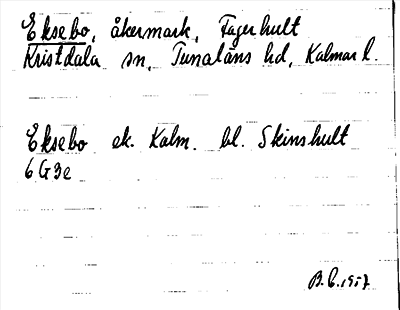 Eksebo, åkermark, Fagerhult
Kristdala sn, Tunaläns hd, Kalmar l.
Eksebo ek. Kalm. bl. Skinshult
6G3e